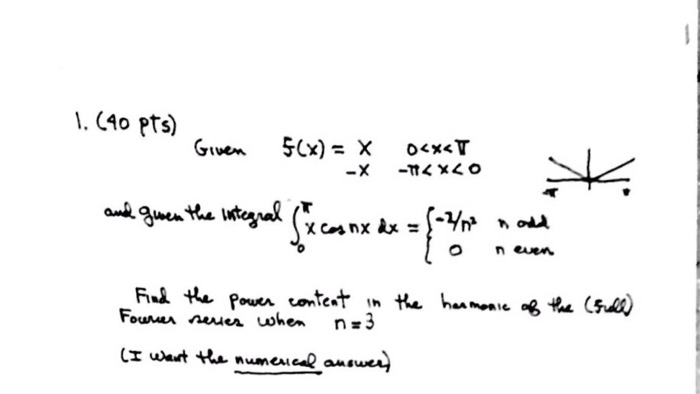 1. (40 pts)
Given f(x) = x 0<x<π
-x -π<x<0
-π π
and given the integral ∫₀^π x cos nx dx = { -2/n² n odd
0 n even
Find the power content in the harmonic of the (full)
Fourier series when n=3
(I want the numerical answer)